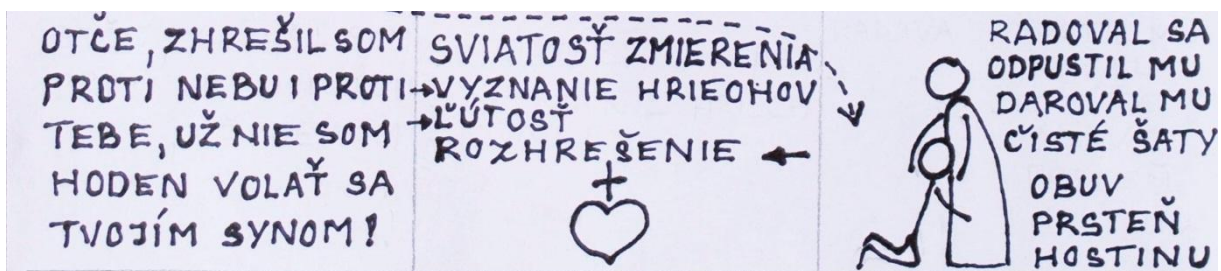 OTČE, ZHREŠIL SOM
PROTI NEBU I PROTI
TEBE, UŽ NIE SOM
HODEN VOLAŤ SA
TVOJÍM SYNOM!
SVIATOSŤ ZMIERENIA
VYZNANIE HRIECHOV
ĽÚTOSŤ
ROZHREŠENIE
RADOVAL SA
ODPUSTIL MU
DAROVAL MU
ČISTÉ ŠATY
OBUV
PRSTEŇ
HOSTINU